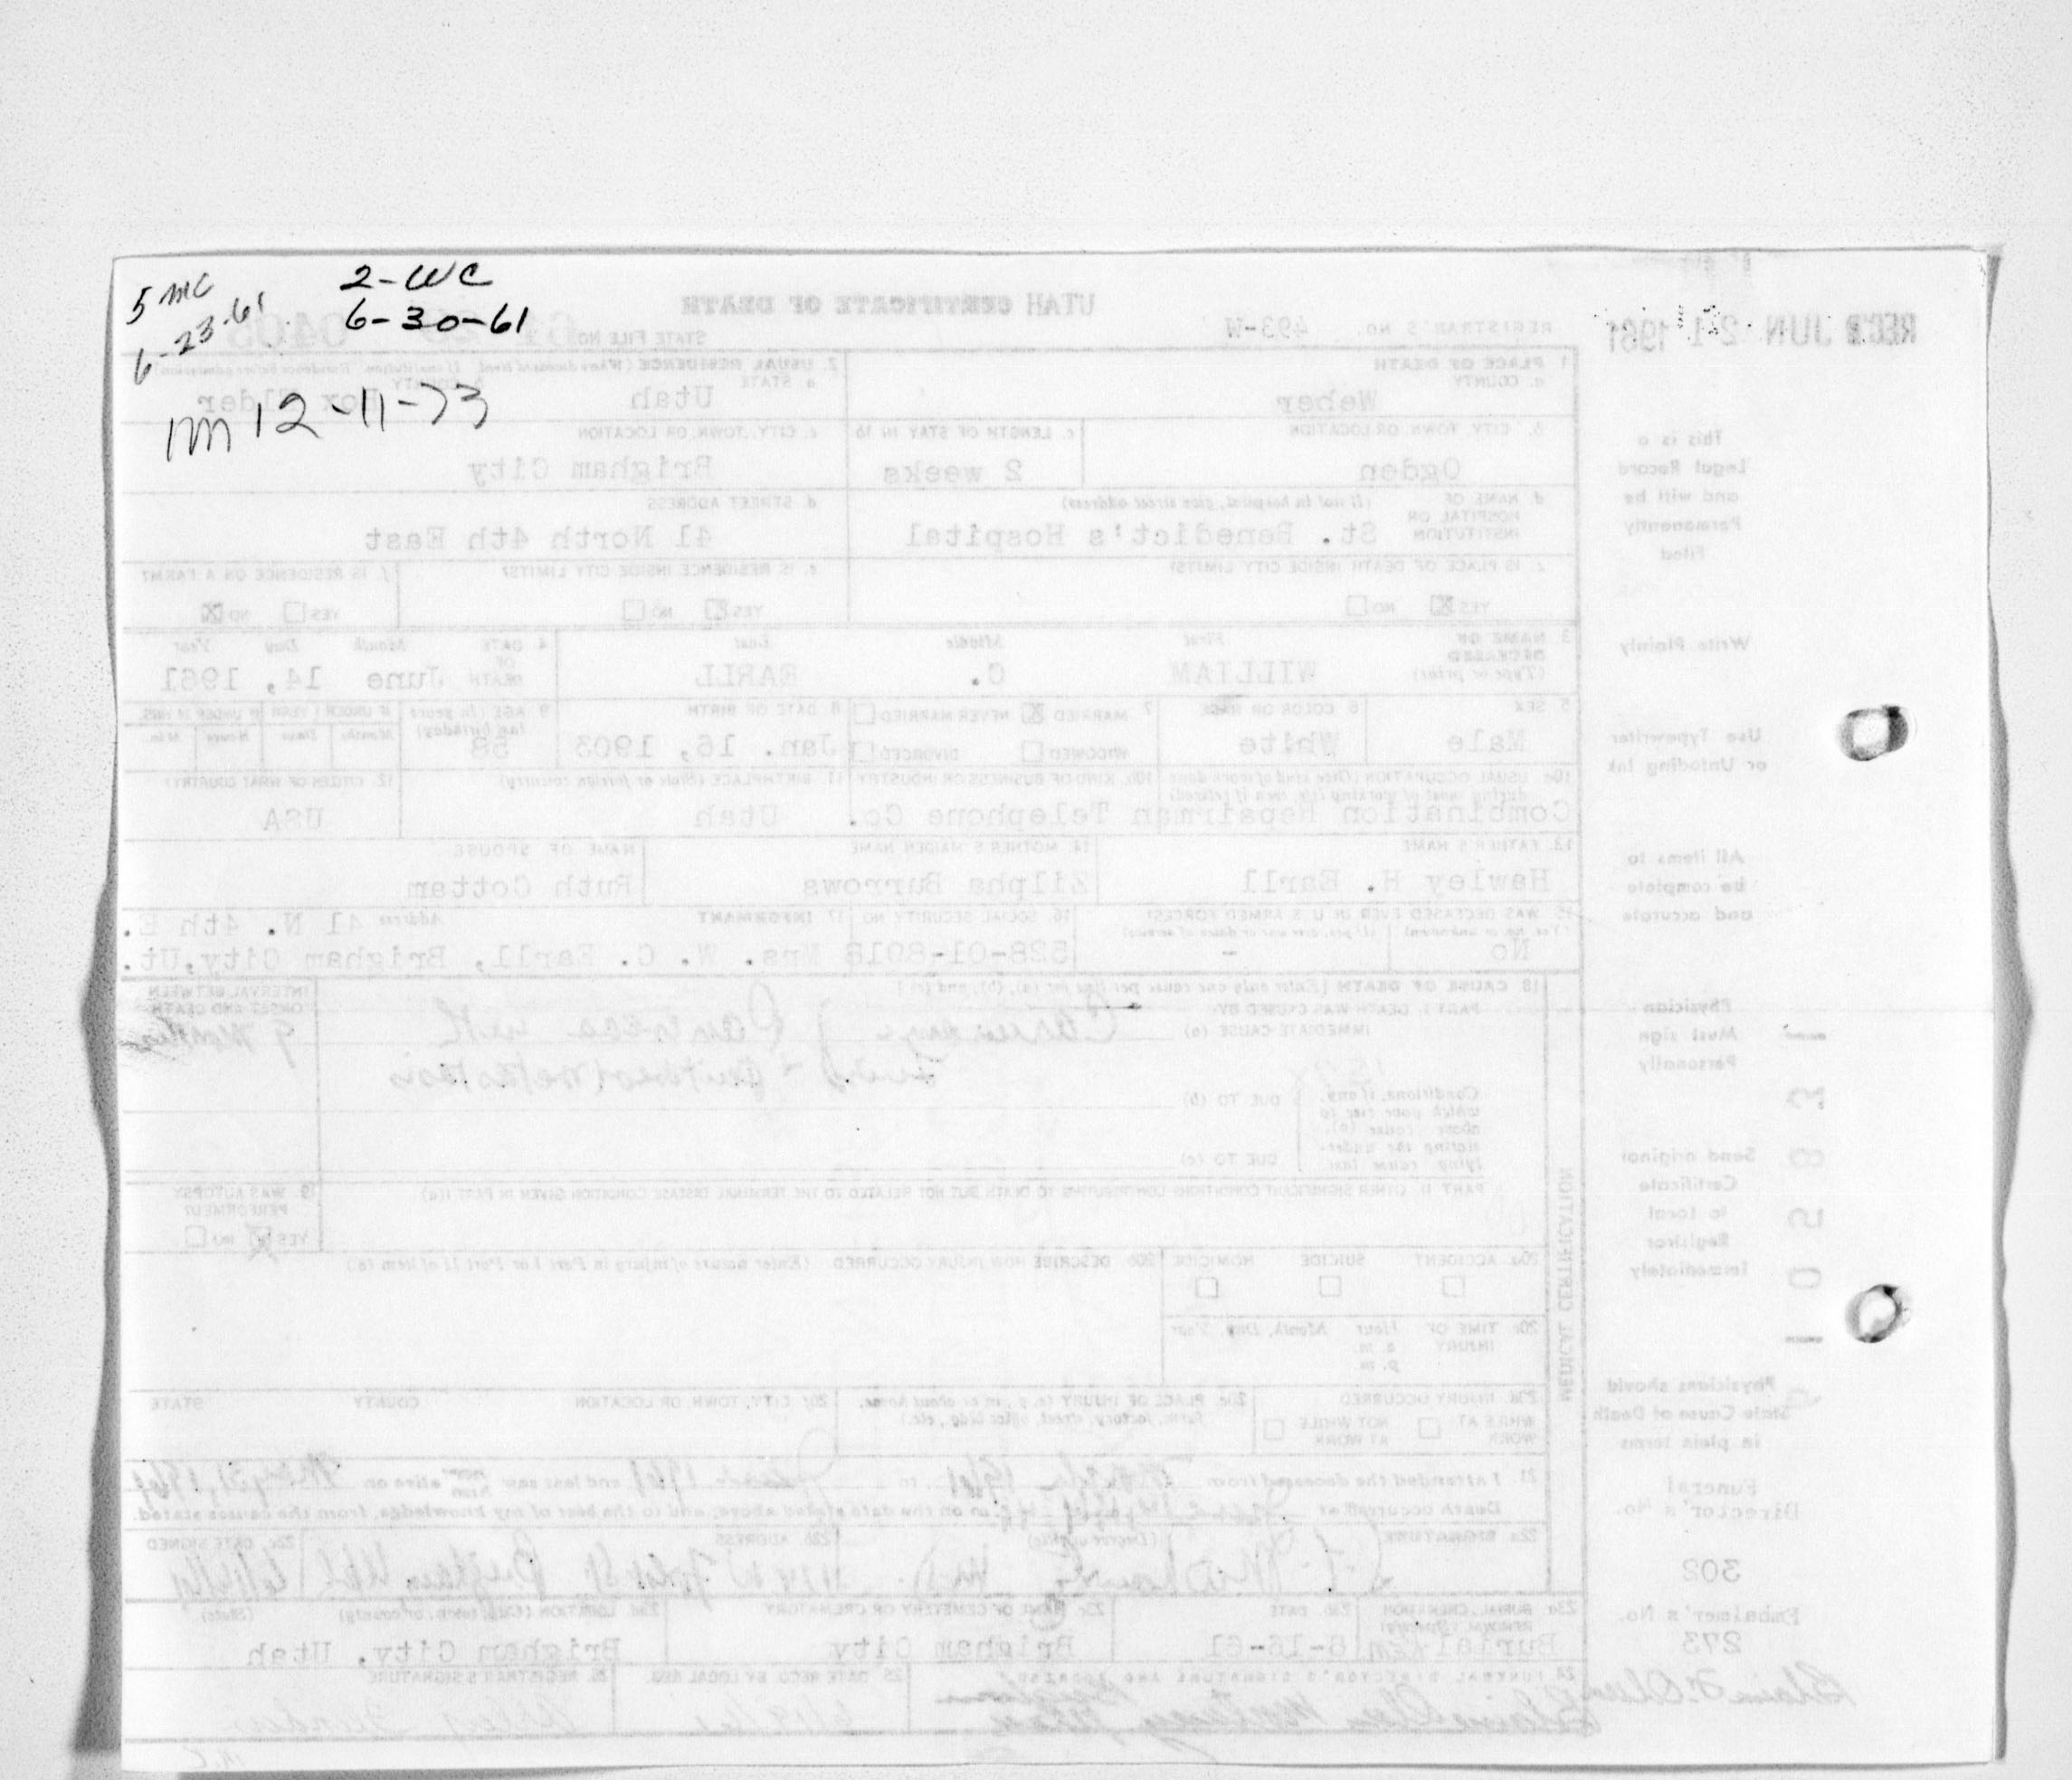 5 mc
6-23-61
2-WC
6-30-61
m 12-11-73
REC'D JUN 21 1961
UTAH CERTIFICATE OF DEATH
REGISTRAR'S NO. 493-W
STATE FILE NO.
1 PLACE OF DEATH
a. COUNTY
Weber
2. USUAL RESIDENCE (Where deceased lived. If institution: Residence before admission)
a STATE
Utah
b. COUNTY
Box Elder
b. CITY, TOWN, OR LOCATION
Ogden
c. LENGTH OF STAY IN 1b
2 weeks
c. CITY, TOWN, OR LOCATION
Brigham City
d. NAME OF HOSPITAL OR INSTITUTION
(If not in hospital, give street address)
St. Benedict's Hospital
d. STREET ADDRESS
41 North 4th East
e. IS PLACE OF DEATH INSIDE CITY LIMITS?
YES NO
e. IS RESIDENCE INSIDE CITY LIMITS?
YES NO
f. IS RESIDENCE ON A FARM?
YES NO
3 NAME OF DECEASED
(Type or print)
First Middle Last
WILLIAM C. EARLL
4 DATE OF DEATH
Month Day Year
June 14, 1961
5. SEX
Male
6 COLOR OR RACE
White
7 MARRIED NEVER MARRIED
WIDOWED DIVORCED
8 DATE OF BIRTH
Jan. 16, 1903
9 AGE (In years last birthday)
58
IF UNDER 1 YEAR IF UNDER 24 HRS.
Months Days Hours Min.
10a. USUAL OCCUPATION (Give kind of work done during most of working life, even if retired)
Combination Repairman
10b. KIND OF BUSINESS OR INDUSTRY
Telephone Co.
11. BIRTHPLACE (State or foreign country)
Utah
12. CITIZEN OF WHAT COUNTRY?
USA
13. FATHER'S NAME
Hawley H. Earll
14. MOTHER'S MAIDEN NAME
Zilpha Burrows
NAME OF SPOUSE
Ruth Cottam
15. WAS DECEASED EVER IN U S ARMED FORCES?
(Yes, no, or unknown) (If yes, give war or dates of service)
No -
16. SOCIAL SECURITY NO
528-01-8018
17 INFORMANT Address
41 N. 4th E.
Mrs. W. C. Earll, Brigham City, Ut.
18 CAUSE OF DEATH [Enter only one cause per line for (a), (b), and (c)]
PART I. DEATH WAS CAUSED BY:
IMMEDIATE CAUSE (a)
Carcinoma of Pancreas with
metastasis
INTERVAL BETWEEN ONSET AND DEATH
9 months
Conditions, if any, which gave rise to above cause (a), stating the underlying cause last
DUE TO (b)
DUE TO (c)
PART II. OTHER SIGNIFICANT CONDITIONS CONTRIBUTING TO DEATH BUT NOT RELATED TO THE TERMINAL DISEASE CONDITION GIVEN IN PART I(a)
19. WAS AUTOPSY PERFORMED?
YES NO
20a. ACCIDENT SUICIDE HOMICIDE
20b. DESCRIBE HOW INJURY OCCURRED. (Enter nature of injury in Part I or Part II of item 18)
20c TIME OF INJURY
Hour Month, Day, Year
a. m.
p. m
20d. INJURY OCCURRED
WHILE AT WORK NOT WHILE AT WORK
20e. PLACE OF INJURY (e.g., in or about home, farm, factory, street, office bldg., etc.)
20f CITY, TOWN, OR LOCATION COUNTY STATE
21. I attended the deceased from March 1961 to June 1961 and last saw her him alive on May 31, 1961
Death occurred at m on the date stated above; and to the best of my knowledge, from the causes stated.
22a SIGNATURE (Degree or title)
M.D.
22b ADDRESS
Brigham Utah
22c. DATE SIGNED
23a BURIAL, CREMATION REMOVAL (Specify)
Burial
23b DATE
6-16-61
23c NAME OF CEMETERY OR CREMATORY
Brigham City
23d. LOCATION (City, town, or county) (State)
Brigham City, Utah
24 FUNERAL DIRECTOR'S SIGNATURE AND ADDRESS
25 DATE RECD BY LOCAL REG.
26. REGISTRAR'S SIGNATURE
MEDICAL CERTIFICATION
This is a
Legal Record
and will be
Permanently
Filed
Write Plainly
Use Typewriter
or Unfading Ink
All items to
be complete
and accurate
Physician
Must sign
Personally
Send original
Certificate
to local
Registrar
Immediately
Physicians should
State Cause of Death
in plain terms
Funeral
Director's No.
302
Embalmer's No.
273